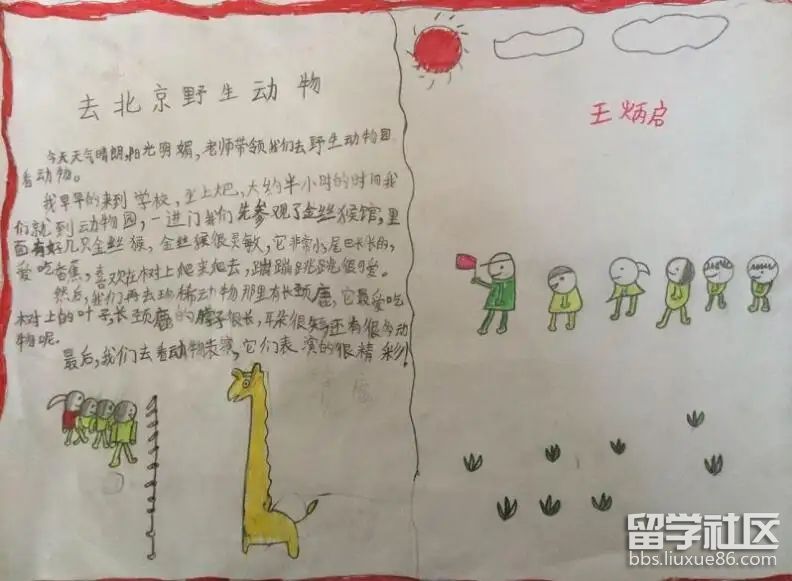 去北京野生动物
今天天气晴朗,阳光明媚,老师带领我们去野生动物园
看动物。
我早早的来到学校,坐上大巴,大约半小时的时间我
们就到动物园,一进门我们先参观了金丝猴馆,里
面有好几只金丝猴,金丝猴很灵敏,它非常小尾巴长长的,
爱吃香蕉,喜欢在树上爬来爬去,蹦蹦跳跳很可爱。
然后,我们再去珍稀动物那里有长颈鹿,它最爱吃
树上的叶子长颈鹿的脖子很长,耳朵很短还有很多动
物呢。
最后,我们去看动物表演,它们表演的很精彩!
王炳启
留学社区
bbs.liuxue86.com